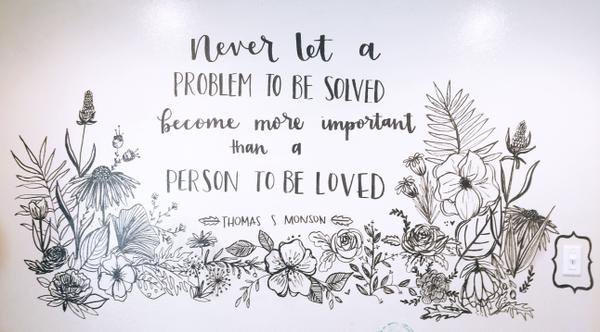 Never let a
PROBLEM TO BE SOLVED
become more important
than a
PERSON TO BE LOVED
THOMAS S MONSON